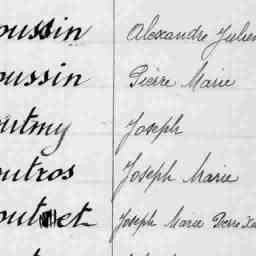 oussin Alexandre Julien
oussin Pierre Marie
outmy Joseph
outros Joseph Marie
outet Joseph Marie Pierre